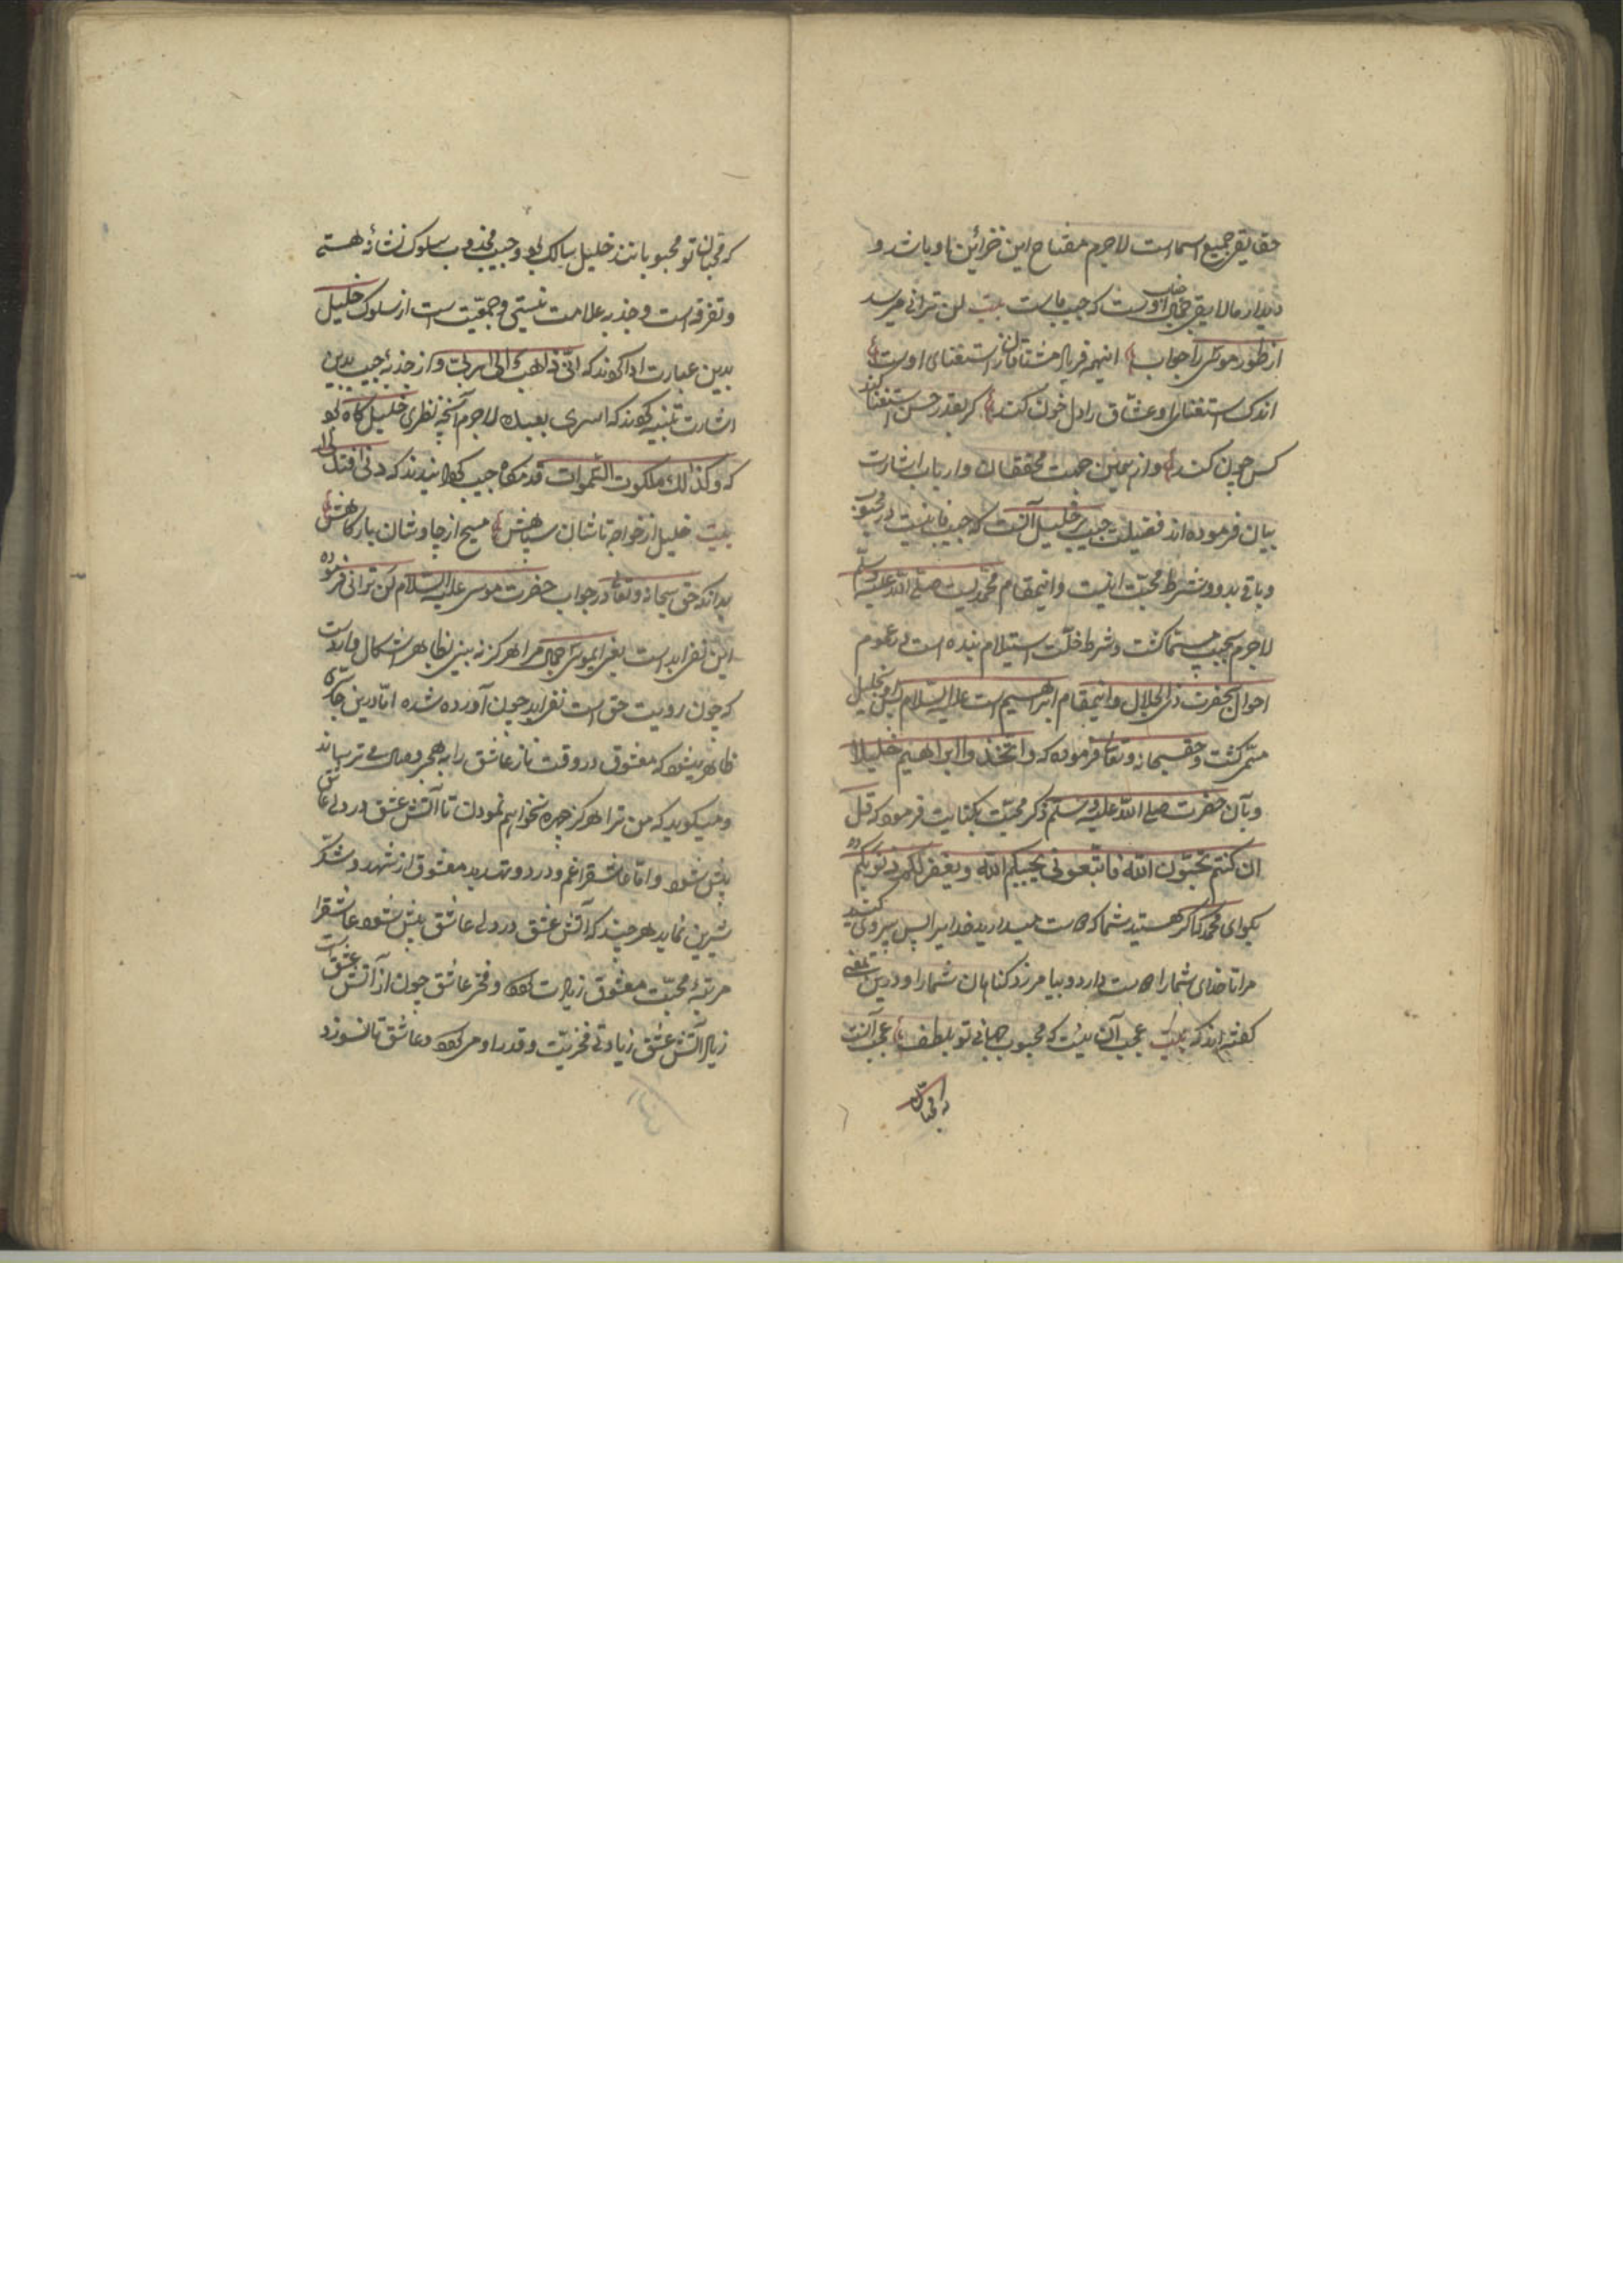 حقایق جمیع اسما است لاجرم مفتاح این خزائن او باشد و
دیدار ما لایق جمال اوست که حبیب ماست بیت لن ترانی میرسد
از طور موسی را جواب اینهمه فریاد مشتاقان ز استغنای اوست
اندک استغنای او عشاق را دل خون کند گر بقدر حسن استغنا کند
کس چون کند و از همین جهت محققان و ارباب اشارت
بیان فرموده اند فضیلت حبیب بر خلیل آنست که حبیب فانیست در محبوب
و باقی بدو و شرط محبت اینست و اینمقام محمدیست صلی الله علیه وسلم
لاجرم بحبیب مسما گشت و شرط خلت استیلام بنده است بر عموم
احوال بحضرت ذی الجلال و اینمقام ابراهیم است علیه السلام پس او بخلیل
مسمی گشت و حق سبحانه وتعالی فرموده که واتخذوا ابراهیم خلیلا
وبآن حضرت صلی الله علیه وسلم ذکر محبت بکنایت فرمود که قل
ان کنتم تحبون الله فاتبعونی یحببکم الله ویغفر لکم ذنوبکم
بگو ای محمد که اگر هستید شما که دوست میدارید خدایرا پس پیروی کنید
مرا تا خدای شما را دوست دارد و بیامرزد گناهان شما را و درین معنی
گفته اند که بیت عجب آن نیست که محبوب جهانی تو بلطف عجب آنست
که محبان
که محبان تو محبوبانند خلیل سالک بود و حبیب مجذوب سلوک نشانۀ هستی
و تفرقه است و جذبه علامت نیستی و جمعیت است از سلوک خلیل
بدین عبارت ادا کردند که انی ذاهب الی ربی و از جذبۀ حبیب بدین
اشارت تنبیه کردند که اسری بعبده لاجرم آنچه نظری خلیل گاه بود
که وکذلک ملکوت السموات قدمگاه حبیب گردانیدند که دنی فتدلی
بیت خلیل از خواجه تاشان سپاهش مسیح از چاوشان بارگاهش
بدانکه حق سبحانه وتعالی در جواب حضرت موسی علیه السلام لن ترانی فرموده
این نفی ابد است یعنی ایموسی جمال مرا هرگز نه بینی بظاهر اشکال وارد است
که چون رویت حق است نفی ابد چون آورده شده اما درین جا سری
ظاهر میشود که معشوق در وقت ناز عاشق را به هجر وصال می ترساند
و میگوید که من ترا هرگز چهره نخواهم نمودن تا آتش عشق در دل عاشق
بیش شود و اما عاشق را غم و درد و تهدید معشوق از شهد و شکر
شیرین نماید هر چند که آتش عشق در دل عاشق بیش شود عاشق را
مرتبۀ محبت معشوق زیادت گردد و فخر عاشق چون از آتش عشق است
زیاد آتش عشق زیادتی فخریت و قدر او می گردد و عاشق تا نسوزد